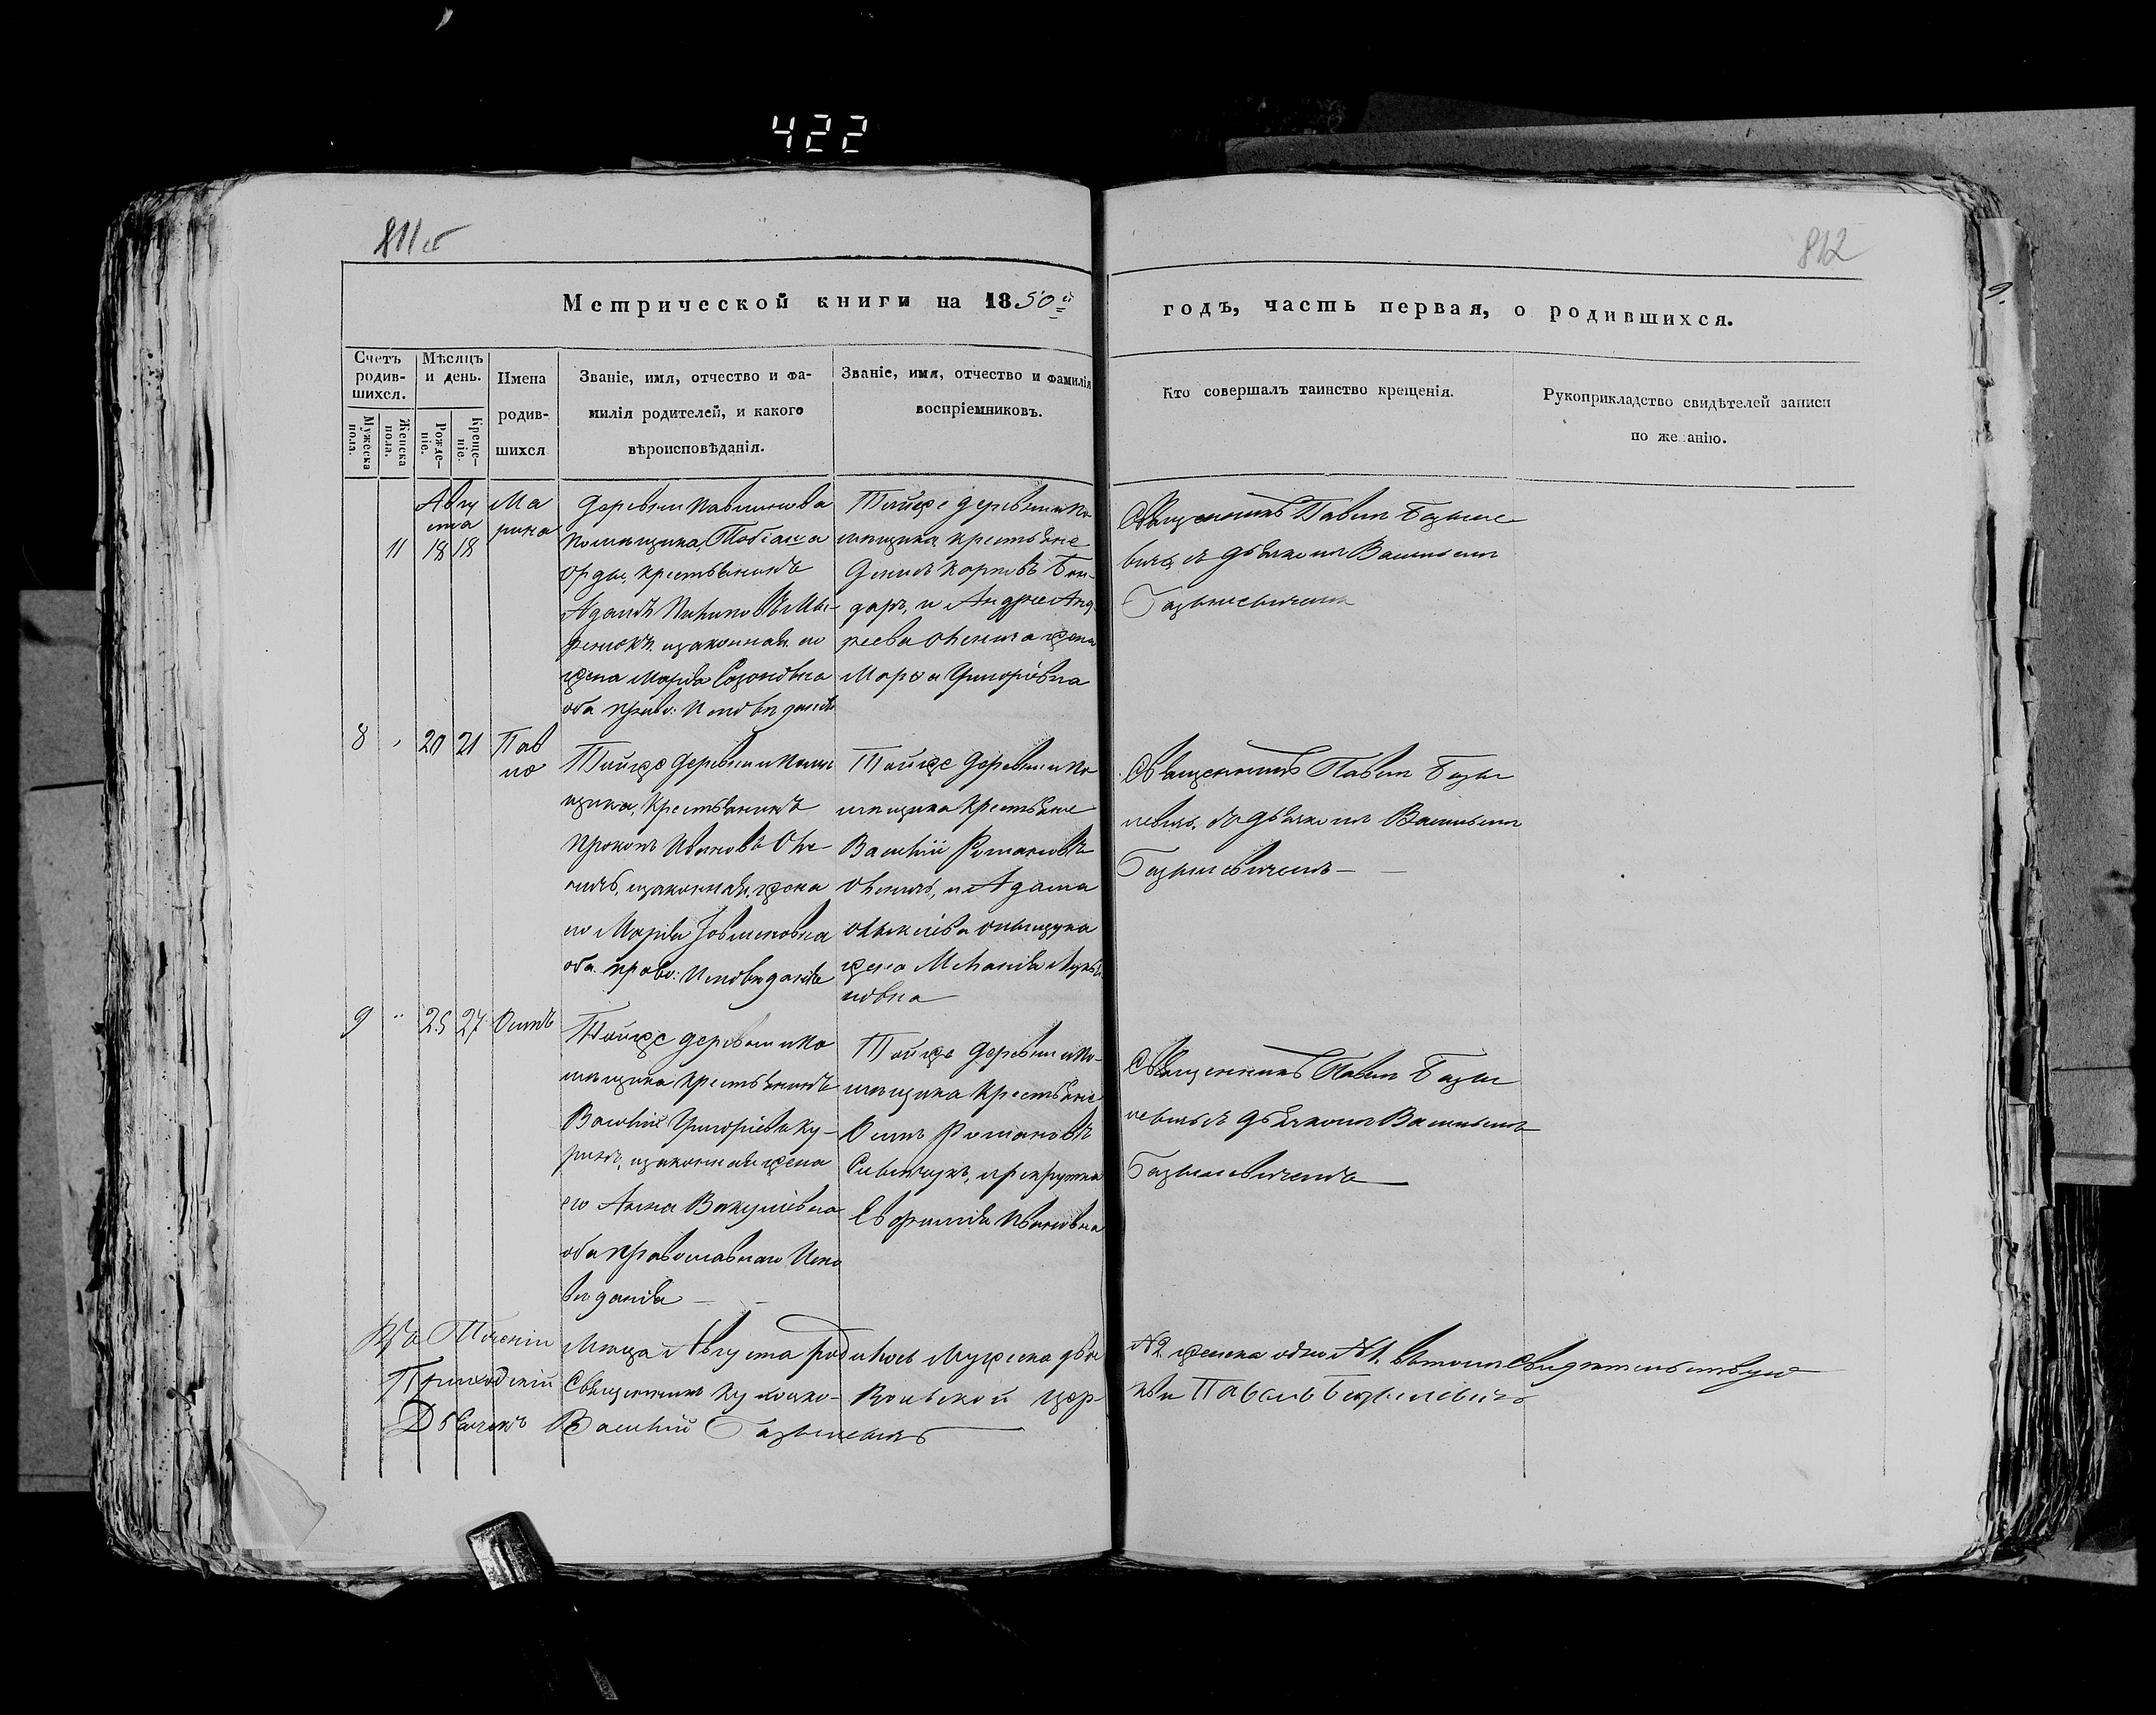 422
811 об
812
9.
Метрической книги на 1850й
годъ, часть первая, о родившихся.
Счетъ родив-
шихся.
Мужеска пола.
Женска пола.
Мѣсяцъ и день.
Рожде-
ніе.
Креще-
ніе.
Имена
родив-
шихся
Званіе, имя, отчество и фа-
милія родителей, и какого
вѣроисповѣданія.
Званіе, имя, отчество и фамилія
воспріемниковъ.
Кто совершалъ таинство крещенія.
Рукоприкладство свидѣтелей записи
по желанію.
Авгу
ста
11 18 18
Ма
рина
Деревни
Помещика
Орды, крестьянинъ
Адамъ
изаконная его
жена Марiя Созоновна
оба право: Исповеданія
Тойже деревни по
мещика крестьяне
Карповъ Бон-
даръ, и Андрея Анд
реева жена
Марѳа Григоріевна
Священникъ Павелъ Базиле
вичъ съ дьячкомъ Василіемъ
Базилевичемъ
8 20 21
Пав
ло
Тойже деревни поме
щика, крестьянинъ
Прокопъ Ивановъ
изаконная жена
его Марiя
оба право: Исповеданія
Тойже деревни по
мещика крестьяне
Василій Романовъ
и Адама
жена Меланія
новна
Священникъ Павелъ Бази
левичъ, съ дьячкомъ Василіемъ
Базилевичемъ
9 " 25 27 Осипъ
Тойже деревни по
мещика крестьянинъ
Василій Григоріевъ Ку-
изаконная жена
его Анна Вакуліевна
оба православнаго Испо
веданія
Тойже деревни по-
мещика крестьяне
Осипъ Романовъ
Савчукъ, и рекрутка
Евфимія Ивановна
Священникъ Павелъ Бази
левичъ съ дьячкомъ Василіемъ
Базилевичемъ
Мца Августа родилось Мужеска два
№2 женска одно №1. вътомъ свидетельствую
Приходскій Священникъ цер-
кви Павелъ Базилевичъ
Дьячокъ Василій Базилевичъ